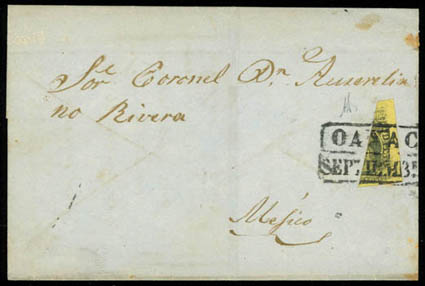 Sor. Coronel Dn. Aurelia
no Rivera
OAXAC
SEP
Mejico